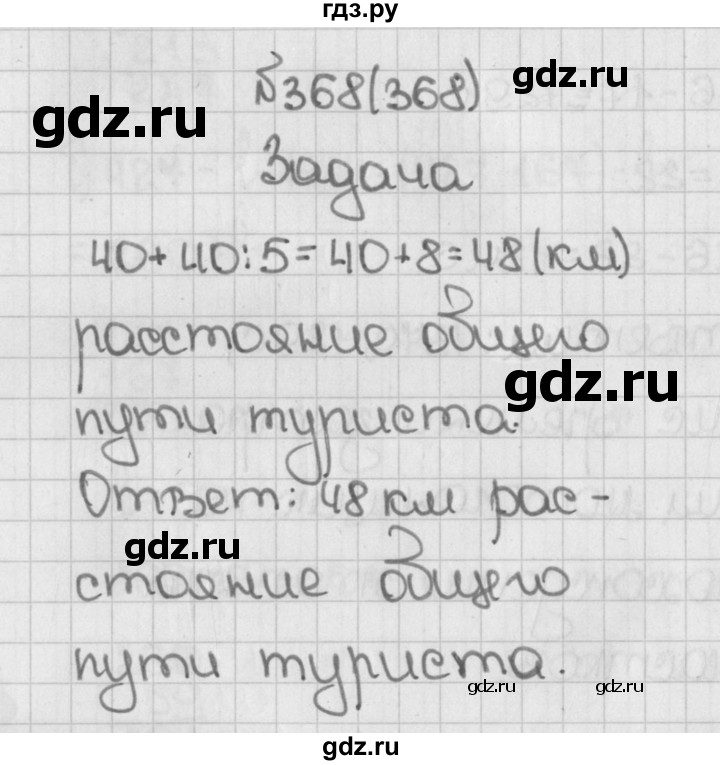 гдз.ру
№368(368)
gdz.ru
Задача
40+40:5=40+8=48(км)
расстояние общего
gdz.ru
пути туриста.
Ответ: 48 км рас-
gdz.ru
стояние общего
пути туриста.
gdz.ru
gdz.ru
gdz.ru